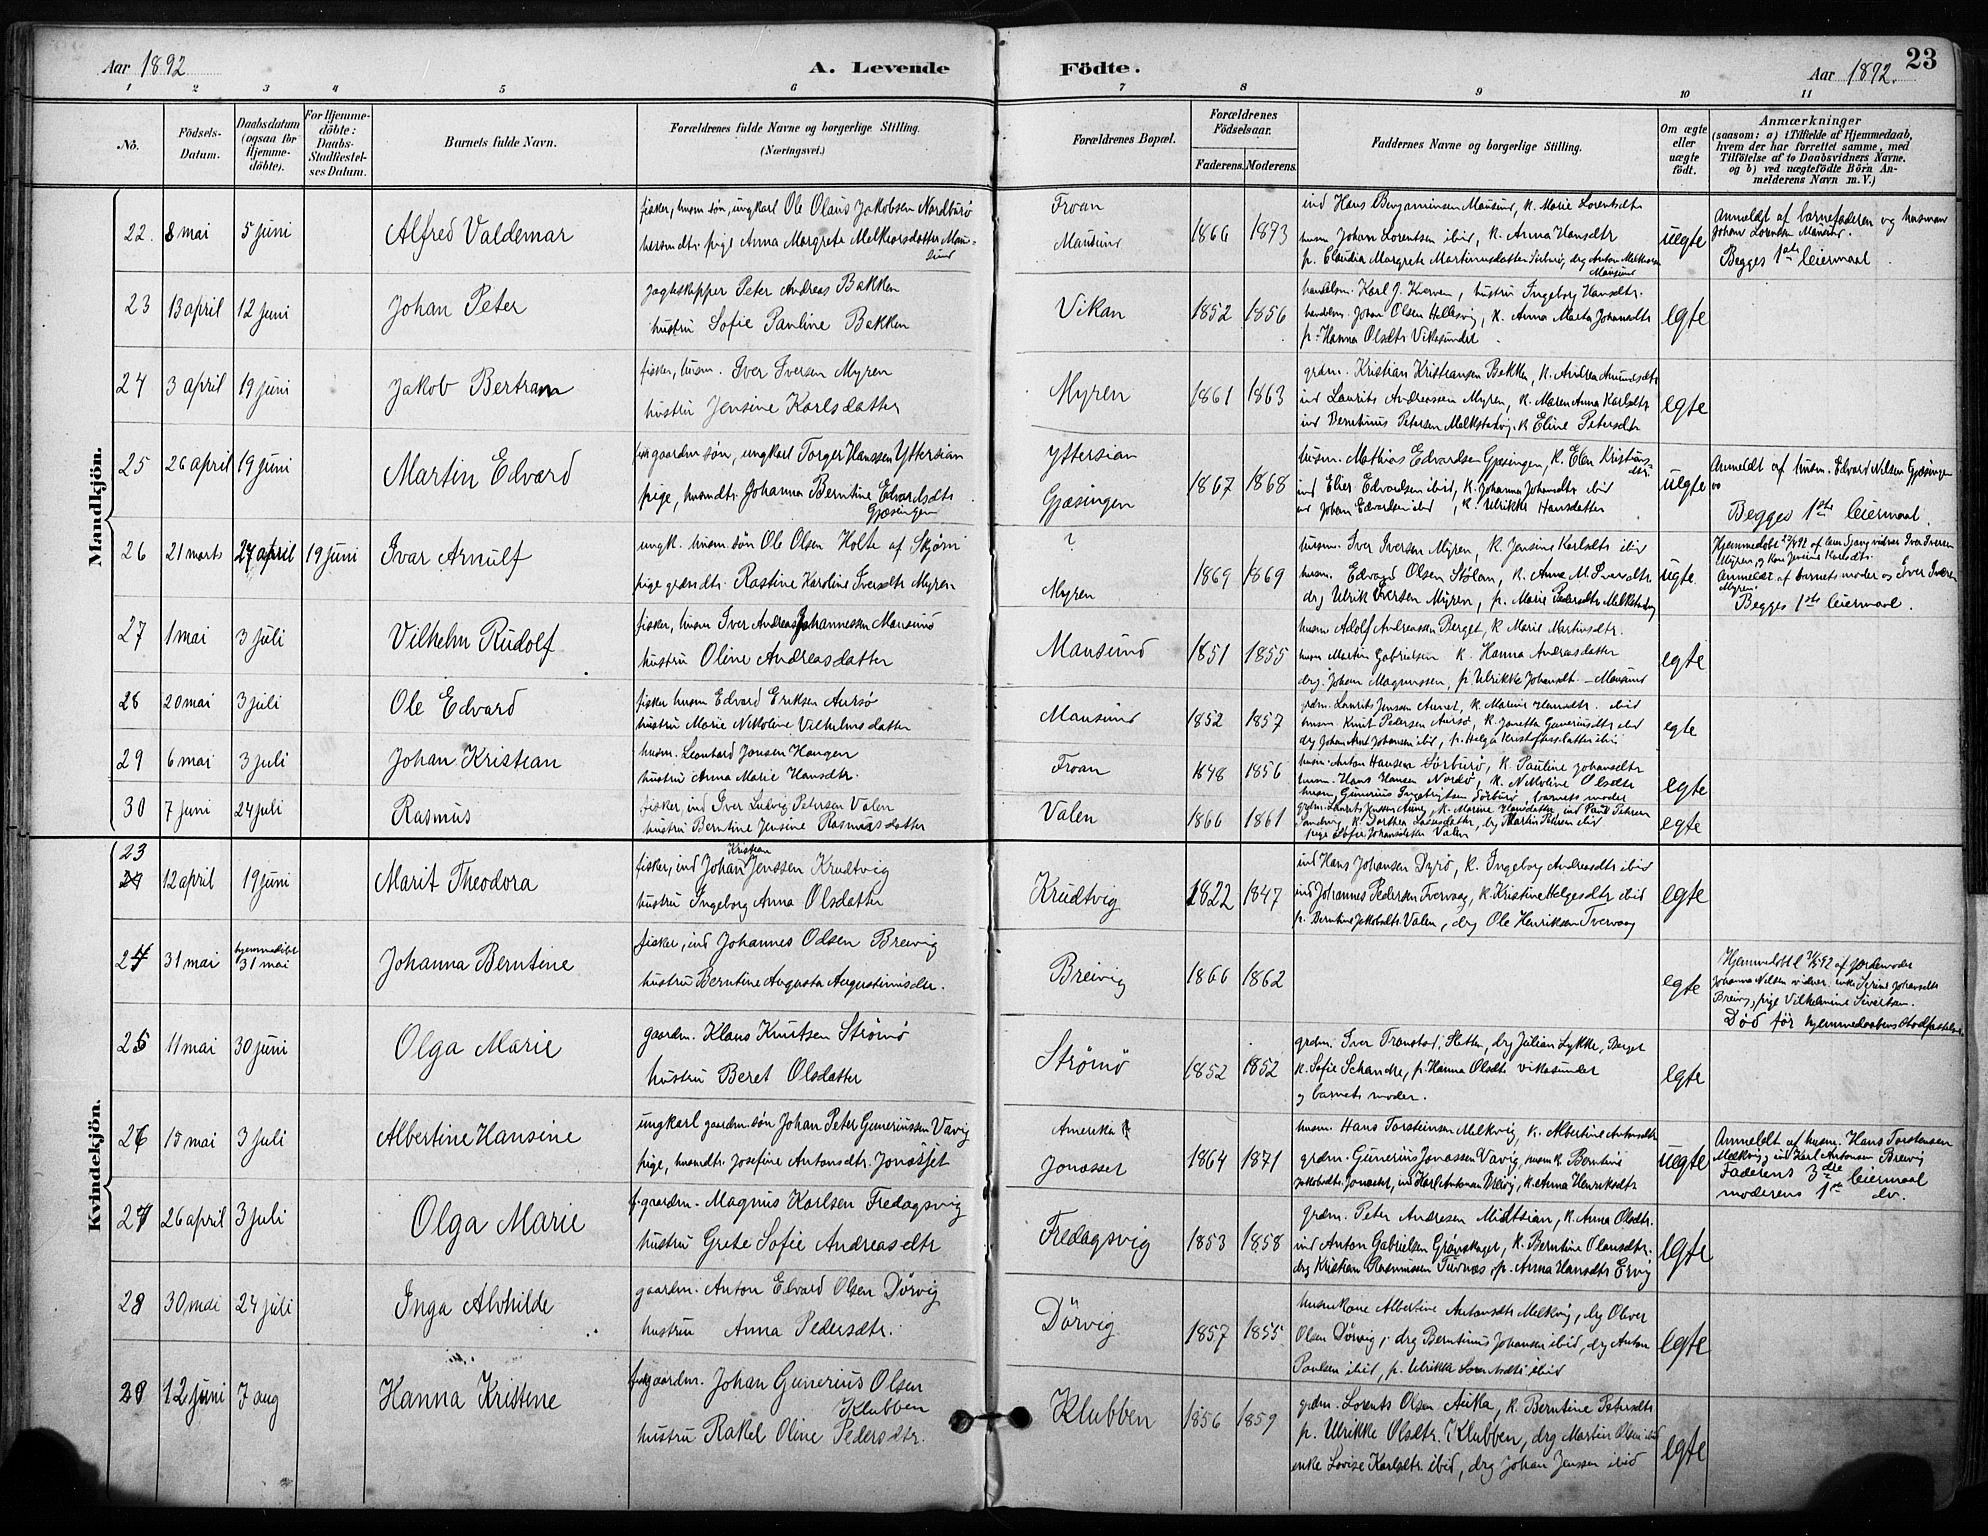 Aar 1892
A. Levende Födte.
Aar 1892.
23
1 2 3 4 5 6 7 8 9 10 11
No.
Födsels-Datum.
Daabsdatum (ogsaa for Hjemmedöbte).
For Hjemmedöbte: Daabs-Stadfæstelses Datum.
Barnets fulde Navn.
Forældrenes fulde Navne og borgerlige Stilling. (Næringsvei.)
Forældrenes Bopæl.
Forældrenes Födselsaar.
Faderens. Moderens.
Faddernes Navne og borgerlige Stilling.
Om ægte eller uægte födt.
Anmærkninger (saasom: a) i Tilfælde af Hjemmedaab, hvem der har forrettet samme, med Tilföielse af to Daabsvidners Navne, og b) ved uægtefödte Börn Anmelderens Navn m. V.)
Mandkjön.
22. 8 mai 5 juni Alfred Valdemar
fisker, husm. søn, ungkarl Ole Olaus Jakobsen Nordburø
husmdtr. pige Anna Margreta Melkiorsdatter Mausund
Froan
Mausund
1866 1873
ind Hans Benjaminsen Mausund, k. Marie Lorentsdtr
husm Johan Lorentsen ibid, k. Anna Hansdtr
p. Claudia Margrete Martinusdatter Sørburø, drg Anton Melkiorsen Mausund
uegte
Anmeldt af barnefaderen og husmand Johan Lorentsen Mausund.
Begges 1ste leiermaal.
23 13 april 12 juni Johan Peter
Jagteskipper Peter Andreas Bakken
hustru Sofie Pauline Bakken
Vikan
1852 1856
handelsm. Karl J. Kverven, hustru Ingeborg Hansdtr.
handelsm. Johan Olsen Hellesvig, k. Anna Marta Johansdtr
p. Hanna Olsdtr Vikasundet
egte
24 3 april 19 juni Jakob Bertram
fisker, husm. Iver Iversen Myren
hustru Jensine Karlsdatter
Myren
1861 1863
grdm. Kristian Kristiansen Bekken, k. Andrea Amundsdtr
ind Laurits Andreassen Myren, k. Maren Anna Karlsdtr
ind Berntinus Petersen Melkstadvig, k Eline Petersdtr
egte
25 26 april 19 juni Martin Edvard
gaardm søn, ungkarl Torger Hanssen Yttersian
pige, husmdtr. Johanna Berntine Edvardsdtr Gjæsingen
Yttersian
Gjæsingen
1867 1868
husm. Mathias Edvardsen Gjæsingen, k. Elen Kristiansdtr
ind Elier Edvardsen ibid, k. Johanna Johansdtr ibid
ind Johan Edvardsen ibid, k. Ulrikke Hansdatter
uegte
Anmeldt af husm. Edvard Nilsen Gjæsingen
Begges 1ste leiermaal.
26 21 marts 27 april 19 juni Ivar Arnulf
ungk. husm. søn Ole Olsen Holte af Skjørn
pige grmdtr. Rastine Karoline Iversdtr Myren
?
Myren
1869 1869
husm. Iver Iversen Myren, k. Jensine Karlsdtr ibid
husm. Edvard Olsen Stølan, k. Anna M. Iversdtr
drg Ulrik Iversen Myren, p. Marie Pedersdtr Melkstadvig
uegte
Anmeldt af barnets moder og Iver Iversen Myren.
Begges 1ste leiermaal.
27 1 mai 3 juli Vilhelm Rudolf
fisker, husm Iver Andreas Johannessen Mausund
hustru Oline Andreasdatter
Mausund
1851 1855
husm Adolf Andreassen Berget, k Marie Martinsdtr.
husm Martin Gabrielsen k. Hanna Andreasdatter
drg. Johan Magnussen, p. Ulrikke Johansdtr – Mausund
egte
28 20 mai 3 juli Ole Edvard
fisker husm Edvard Eriksen Aursø
hustru Marie Nikoline Vilhelmsdatter
Mausund
1852 1857
grdm. Laurits Jenssen Aunet, k. Marine Hansdtr. ibid
husm. Knut Pedersen Aursø, k. Janetta Guneriusdtr ibid
drg Johan Arnt Johansen ibid, p. Helga Kristoffersdatter ibid
egte
29 6 mai 3 juli Johan Kristian
husm. Leonhard Jonsen Haugen
hustru Anna Marie Hansdtr.
Froan
1848 1856
husm. Anton Hansen Sørburø, k. Pauline Johansdtr
husm. Hans Hansen Nordø, k. Nikoline Olsdtr
husm, Gunerius Ingebrigtsen Sørburø, barnets moder
egte
30 7 juni 24 juli Rasmus
fisker, ind Iver Ludvig Petersen Valen
hustru Berntine Jensine Rasmusdatter
Valen
1866 1861
grdm. Laurits Jenssen Aunet, k. Marine Hansdatter, ind Paul Petersen
k. Dorthea Larsdatter, drg Martin Petersen ibid
pige Sofie Johansdatter Valen
egte
Kvindekjön.
23 12 april 19 juni Marit Theodora
fisker, ind Johan Kristian Jenssen Krudtvig
hustru Ingeborg Anna Olsdatter
Krudtvig
1822 1847
ind Hans Johansen Dyrø, k. Ingeborg Andreasdtr ibid
ind Johannes Pedersen Tvervaag, k. Kristine Helgesdtr ibid
p. Berntine Jakobsdtr Valen, drg Ole Henriksen Tvervaag
egte
24 31 mai hjemmedøbt 31 mai Johanna Berntine
fisker, ind Johannes Odsen Breivig
hustru Berntine Augusta Augustinusdtr.
Breivig
1866 1862
egte
Hjemmedøbt 31/5 92 af Jordemoder Johanna Nilsen vidner. enke Serine Johansdtr Breivig, pige Vilhelmine Sivertsen.
Død før hjemmedaabens stadfæstelse
25 11 mai 30 juni Olga Marie
gaardm. Klaus Knutsen Strømø
hustru Beret Olsdatter
Strømø
1852 1852
grdm. Iver Transtad, Sletten, drg Julian Lykke, Berget
k. Sofie Schanche, p. Hanna Olsdtr Vikasundet
og barnets moder.
egte
26 15 mai 3 juli Albertine Hansine
ungkarl gaardm. søn Johan Peter Guneriussen Vavig
pige, husmdtr. Josefine Antonsdtr. Jonasset
Amerika
Jonasset
1864 1871
husm. Hans Torsteinsen Melkvig, k. Albertine Antonsdtr
grdm. Gunerius Jonassen Vavig, husmk. Berntine
Jakobsdtr Jonasset, ind Karl Antonsen Breivig, k. Anna Henriksdtr
uegte
Anmeldt af husm. Hans Torstensen Melkvig, ind Karl Antonsen Breivig
Faderens 3dre leiermaal
moderens 1ste do.
27 26 april 3 juli Olga Marie
f. gaardm. Magnus Karlsen Fredagsvig
hustru Grete Sofie Andreasdtr
Fredagsvig
1853 1858
grdm. Peter Andresen Midtsian, k. Anna Olsdtr.
ind Anton Gabrielsen Grønskaget, k. Berntine Olausdtr.
drg Kristian Rasmussen Tuvnæs, p. Anna Hansdtr Ervig
egte
28 30 mai 24 juli Inga Alvhilde
gaardm. Anton Edvard Olsen Dørvig
hustru Anna Pedersdtr.
Dørvig
1857 1855
husmkone Albertine Antonsdtr Melkvig, drg Oliver
Olsen Dørvig, drg Berntinus Johansen ibid, drg Anton
Paulsen ibid, p. Ulrikke Lorntsdtr ibid
egte
29 12 juni 7 aug Hanna Kristine
gaardm. Johan Gunerius Olsen Klubben
hustru Rakel Oline Pedersdtr.
Klubben
1856 1859
grdm. Lorents Olsen Auka, k. Berntine Petersdtr
p. Ulrikke Olsdtr. Klubben, drg Martin Olsen ibid
enke Lovise Karlsdtr ibid, drg Johan Jenssen ibid
egte